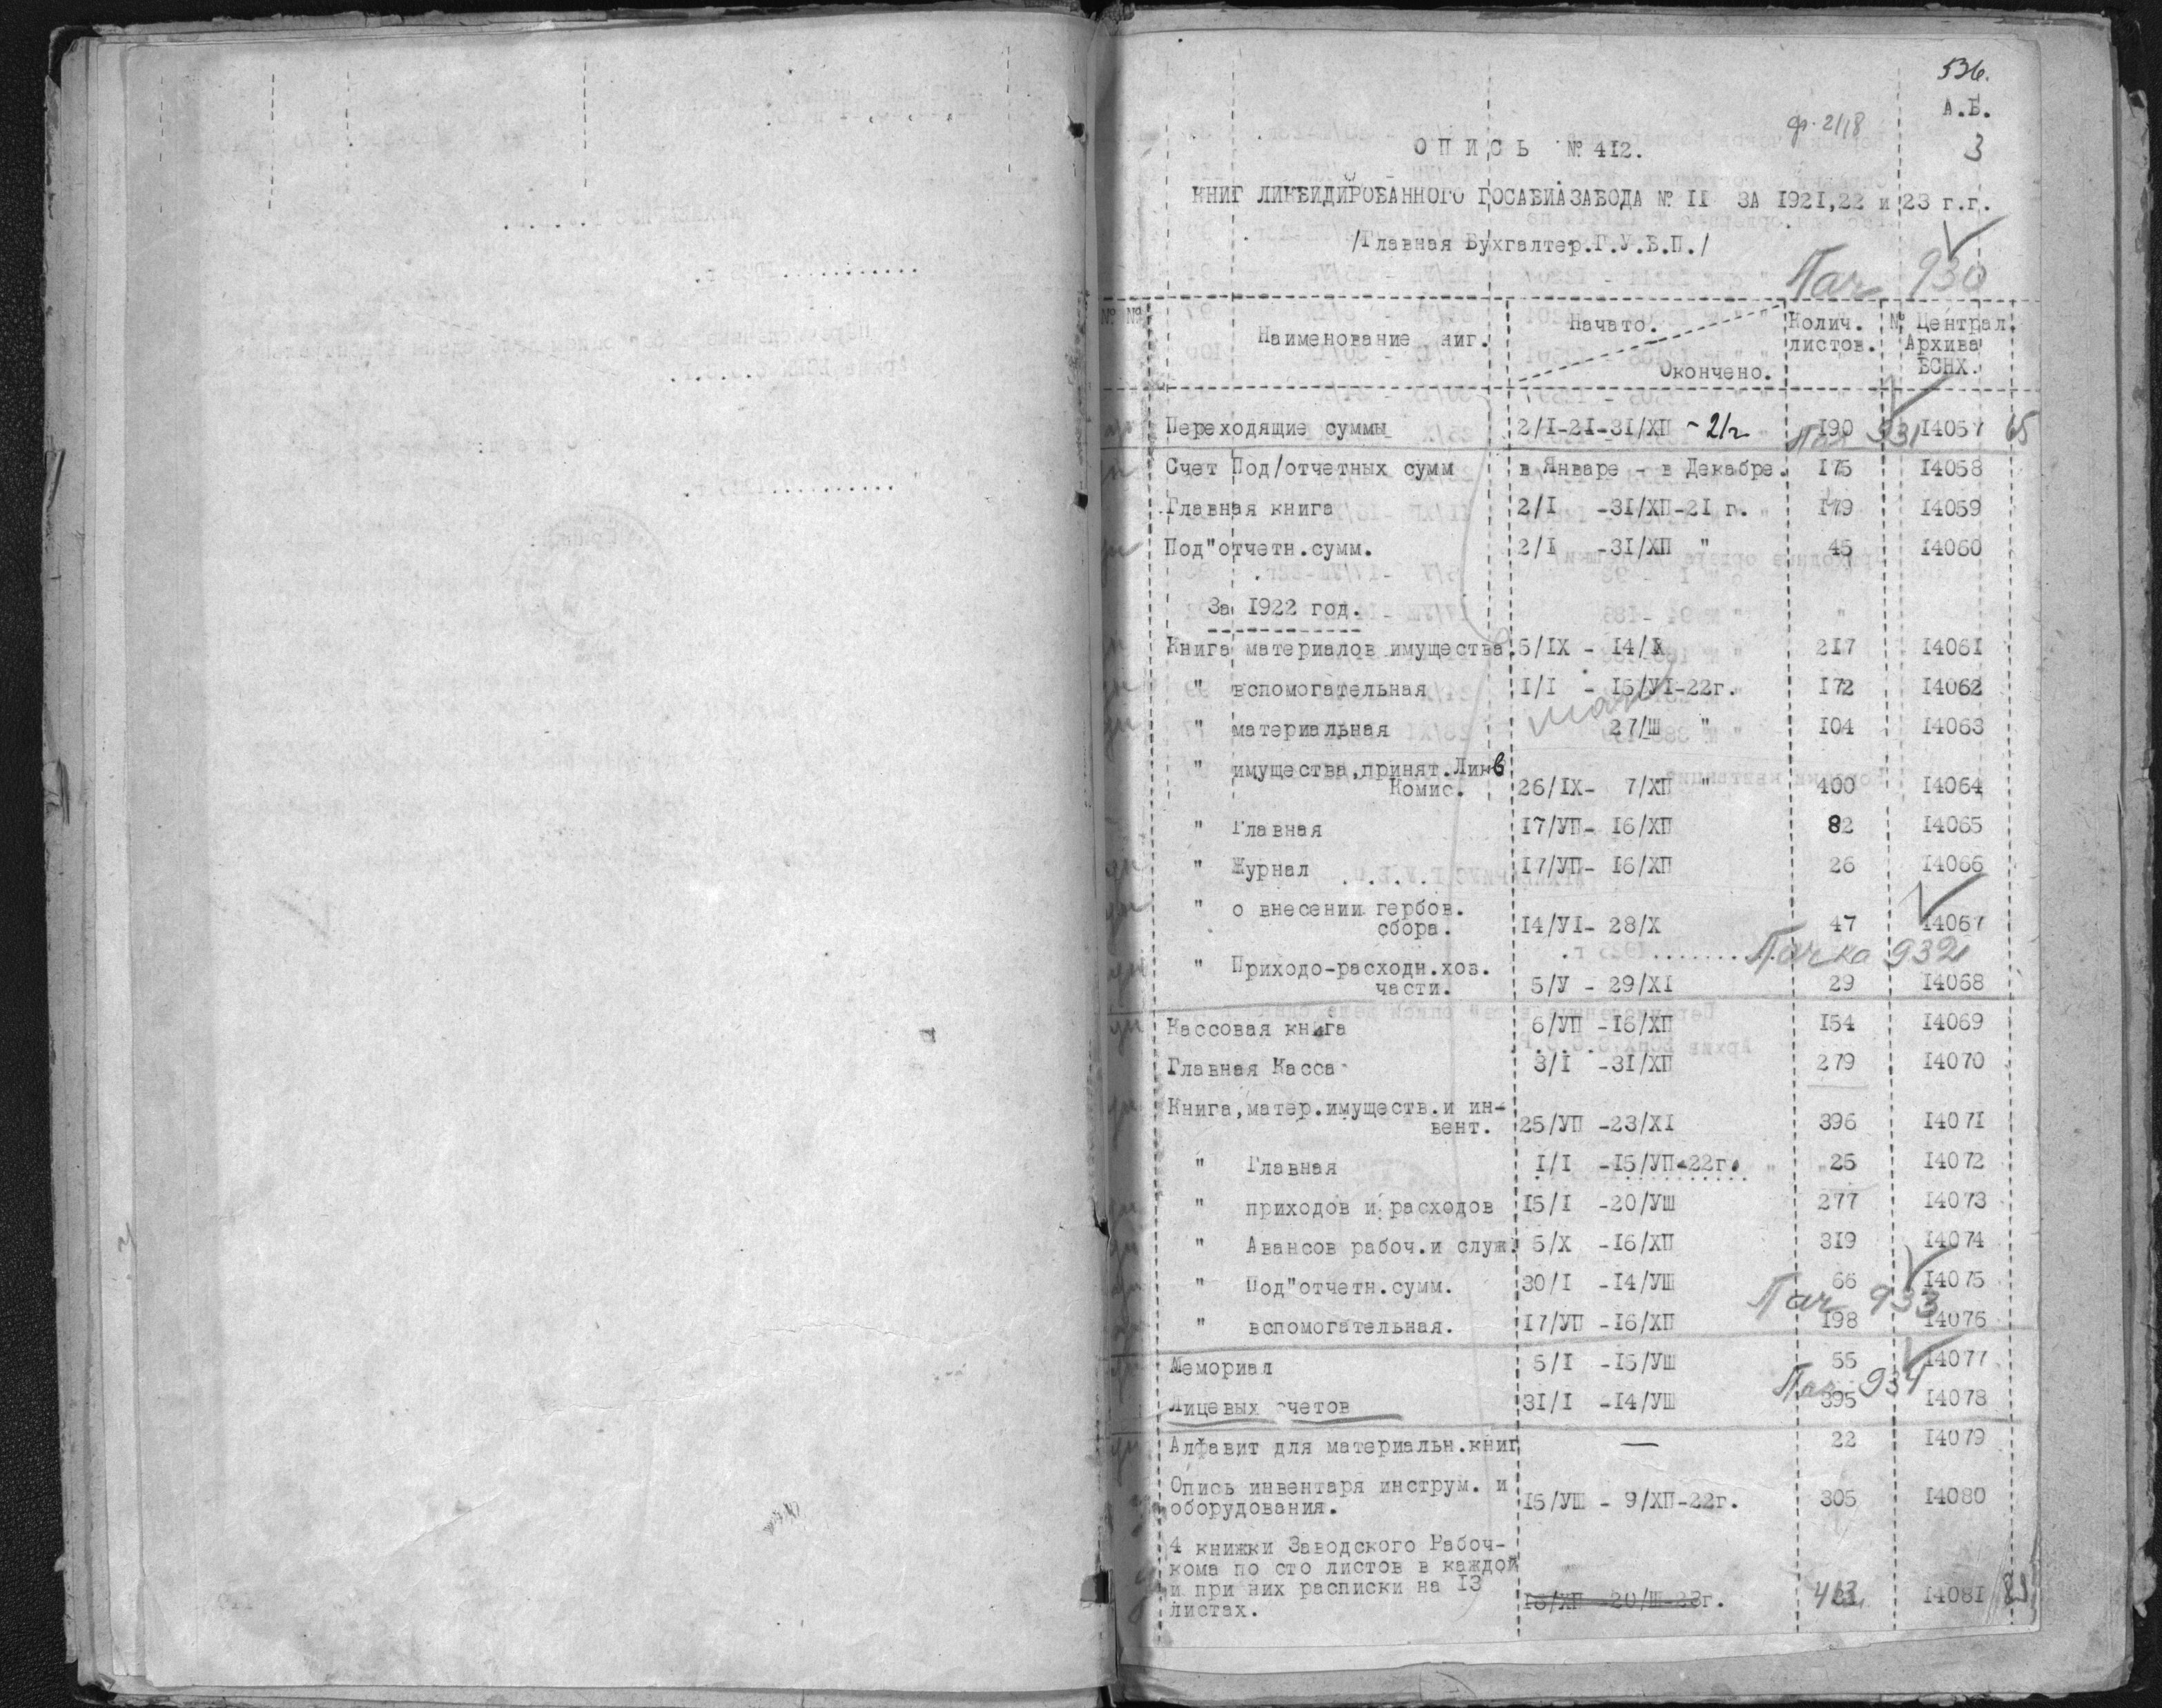 536.
А.Б.
ф. 2118
3
ОПИСЬ № 412.
КНИГ ЛИКВИДИРОВАННОГО ГОСАВИАЗАВОДА № II ЗА 1921,22 и 23 г.г.
/Главная Бухгалтер.Г.У.В.П./
Пач 930
№ № Наименование книг. Начато. Окончено. Колич. листов. № Централ. Архива ВСНХ.
Переходящие суммы 2/I-21-31/ХП - 21г 190 14057 65
Пач 931
Счет Под/отчетных сумм в Январе - в Декабре. 175 14058
Главная книга 2/I -31/ХП-21 г. 179 14059
Под"отчетн.сумм. 2/I -31/ХП " 45 14060
За 1922 год.
Книга материалов имущества 5/IX - 14/X 217 14061
" вспомогательная I/I - 15/УI-22г. 172 14062
" материальная 27/Ш " 104 14063
" имущества,принят.Линв
Комис. 26/IX- 7/ХП " 400 14064
" Главная 17/УП- 16/ХП 82 14065
" Журнал 17/УП- 16/ХП 26 14066
" о внесении гербов.
сбора. 14/УI- 28/X 47 14067
Пачка 932
" Приходо-расходн.хоз.
части. 5/У - 29/XI 29 14068
Кассовая книга 6/УП -16/ХП 154 14069
Главная Касса 3/I -31/ХП 279 14070
Книга,матер.имуществ.и ин-
вент. 25/УП -23/XI 396 14071
" Главная I/I -15/УП-22г. 25 14072
" приходов и расходов 15/I -20/УШ 277 14073
" Авансов рабоч.и служ. 5/X -16/ХП 319 14074
" Под"отчетн.сумм. 30/I -14/УШ 66 14075
Пач 933
" вспомогательная. 17/УП -16/ХП 198 14076
Мемориал 5/I -15/УШ 55 14077
Пач 934
Лицевых счетов 31/I -14/УШ 395 14078
Алфавит для материальн.книг — 22 14079
Опись инвентаря инструм. и
оборудования. 15/УШ - 9/ХП-22г. 305 14080
4 книжки Заводского Рабоч-
кома по сто листов в каждой
и при них расписки на 13
листах. 413 14081